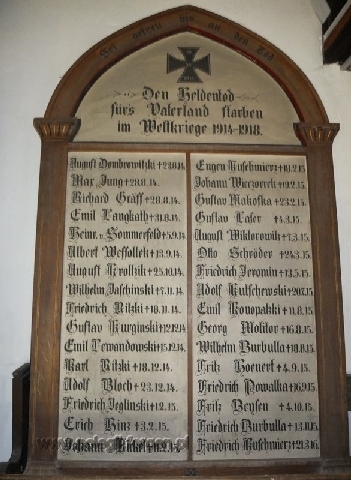 Sei getreu bis an den Tod
Den Heldentod
für's Vaterland starben
im Weltkriege 1914-1918.
August Dombrowitzki +23.8.14.
Max Jung +28.8.14.
Richard Gräff +28.8.14.
Emil Langkath +31.8.14.
Heinr. v. Sommerfeld +5.9.14.
Albert Wessollek +13.9.14.
August Krollzik +25.10.14.
Wilhelm Jaschinski +7.11.14.
Friedrich Ritzki +18.11.14.
Gustav Kurginski +12.12.14
Emil Lewandowski +15.12.14.
Karl Ritzki +18.12.14.
Adolf Bloch +23.12.14.
Friedrich Jeglinski +1.2.15.
Erich Hinz +3.2.15.
Johann Nickel +11.2.15.
Eugen Kuschmierz +19.2.15.
Johann Wieczorrek +19.2.15.
Gustav Makoska +23.2.15.
Gustav Laser +4.3.15.
August Wiktorowik +7.3.15.
Otto Schröder +24.3.15.
Friedrich Jeromin +13.5.15.
Adolf Kutschewski +20.7.15.
Emil Konopatzki +11.8.15.
Georg Molitor +16.8.15.
Wilhelm Burbulla +18.8.15.
Fritz Hoenert +4.9.15.
Friedrich Powalka +16.9.15
Fritz Beysen +4.10.15.
Friedrich Burbulla +13.10.15
Friedrich Kuschmierz +21.3.16